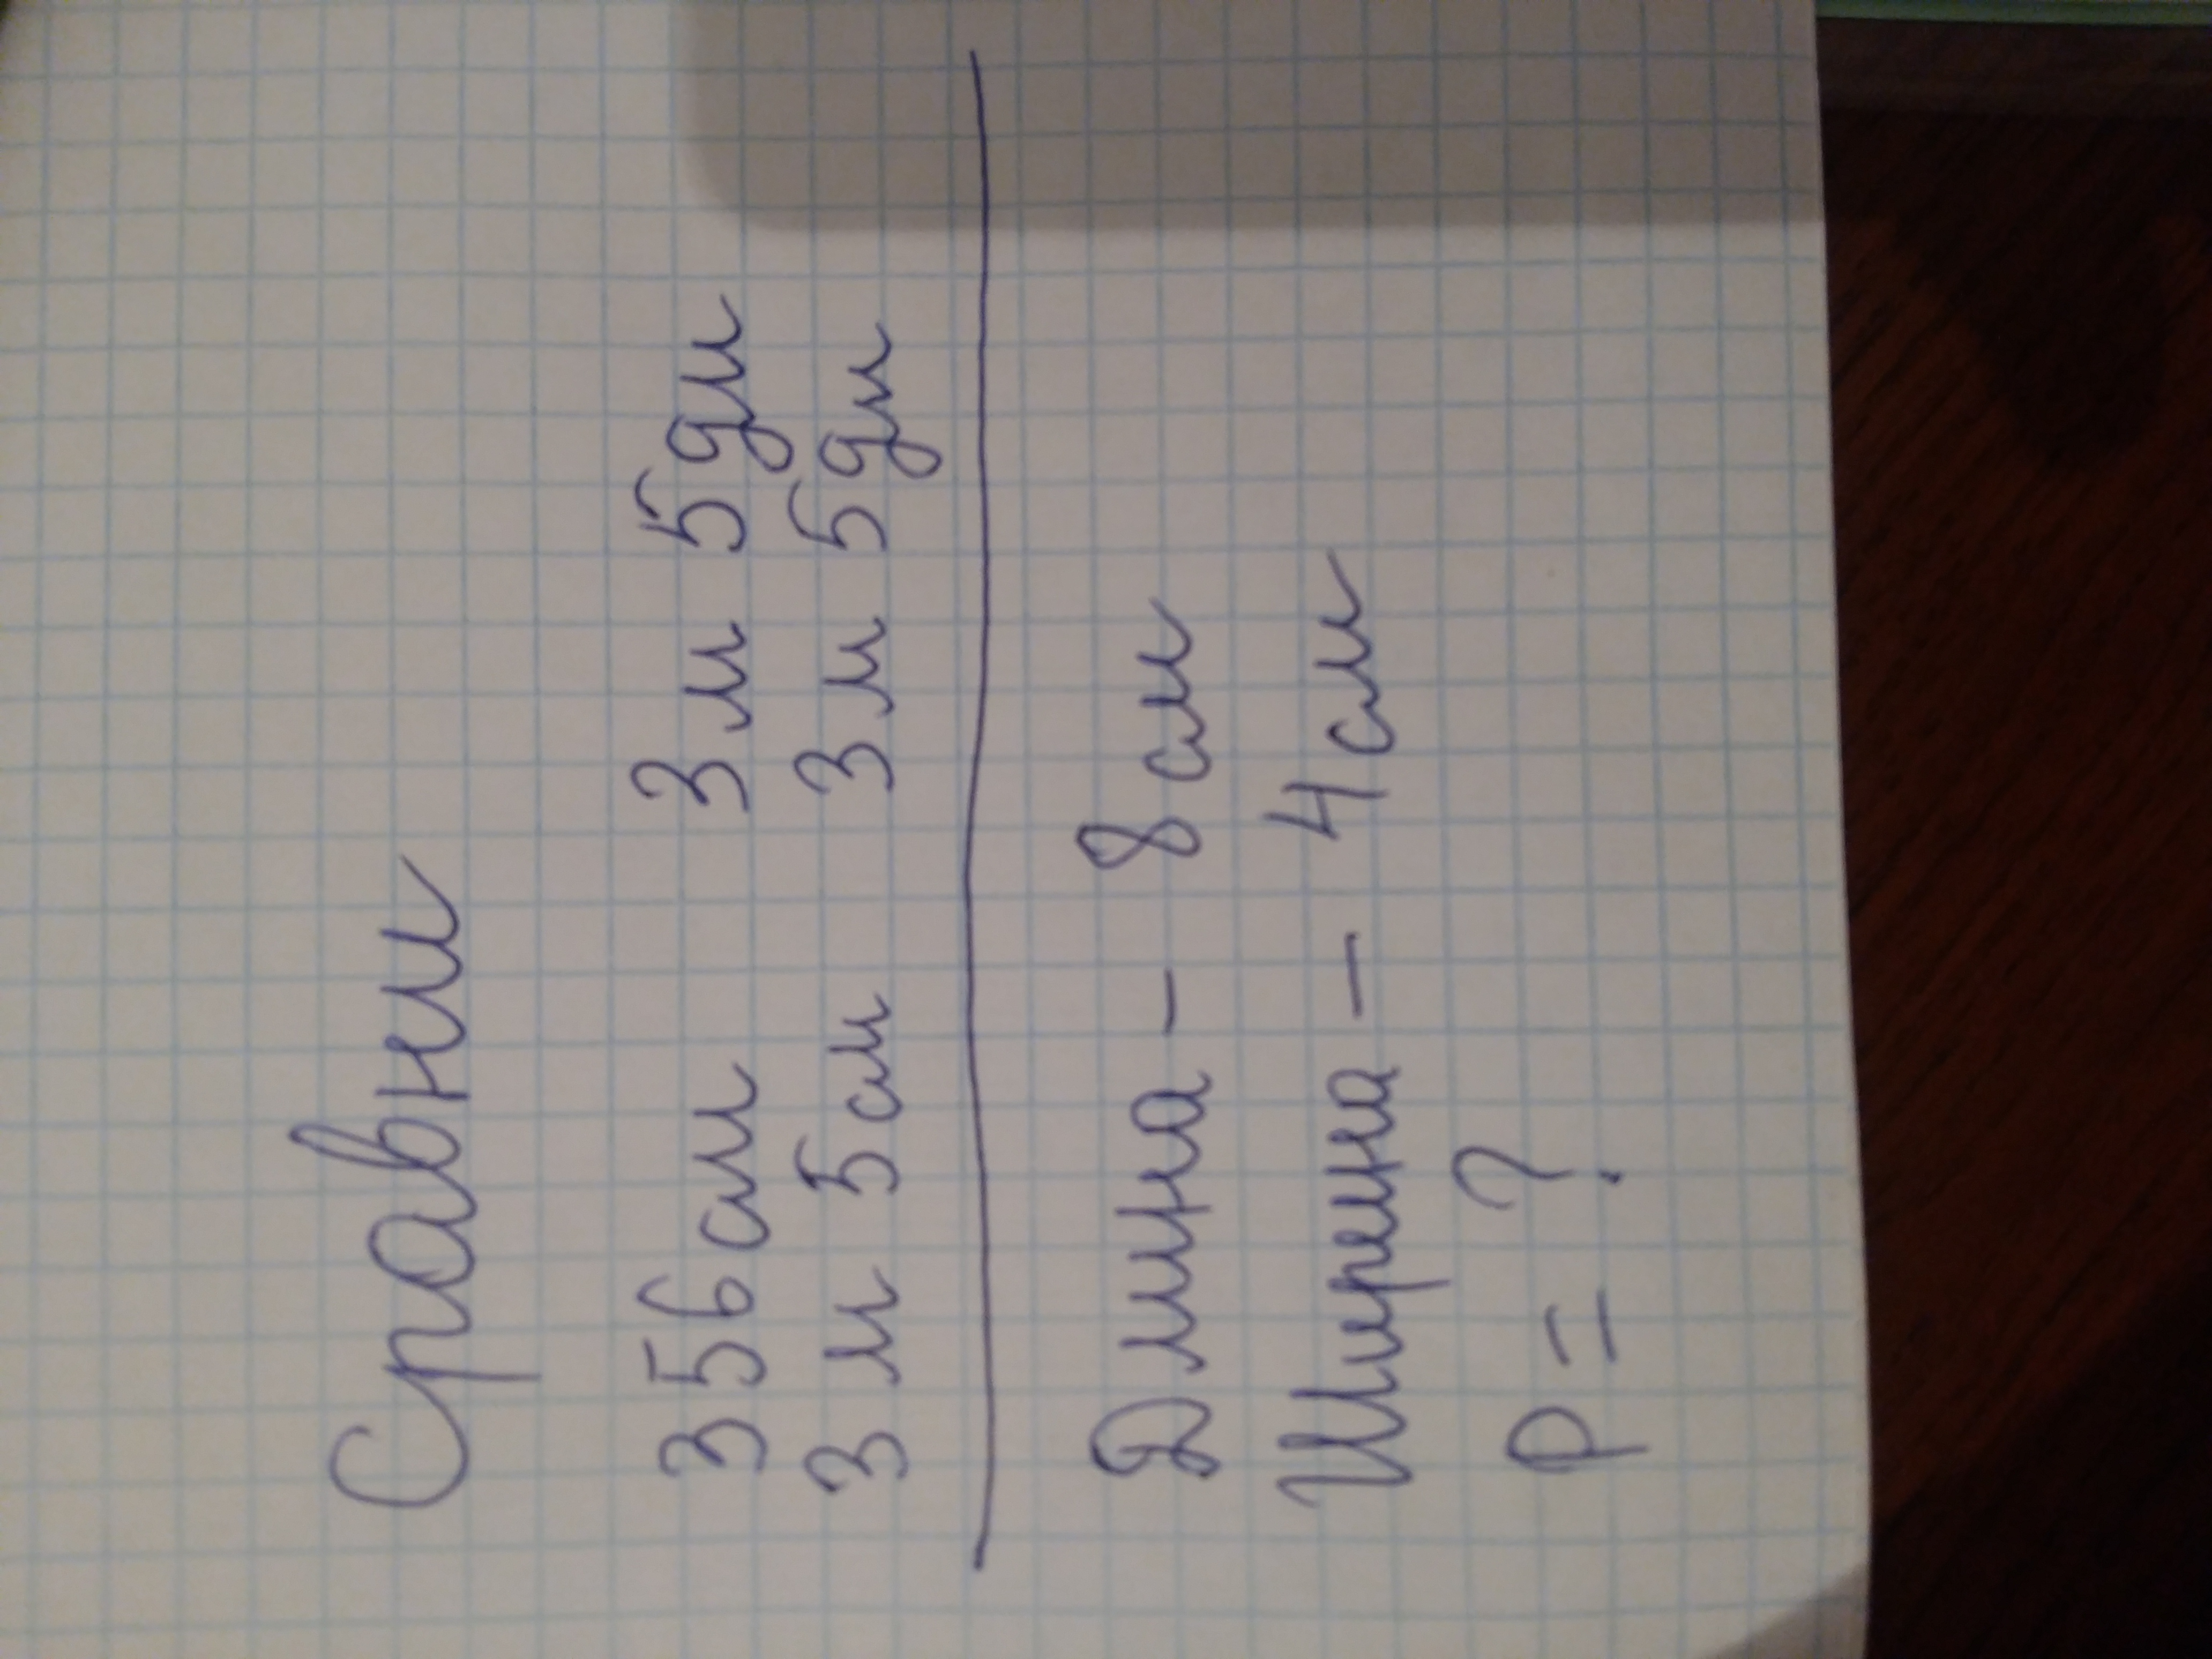 Сравни
356 см 3 м 5 дм
3 м 5 см 3 м 5 дм
Длина - 8 см
Ширина - 4 см
P = ?